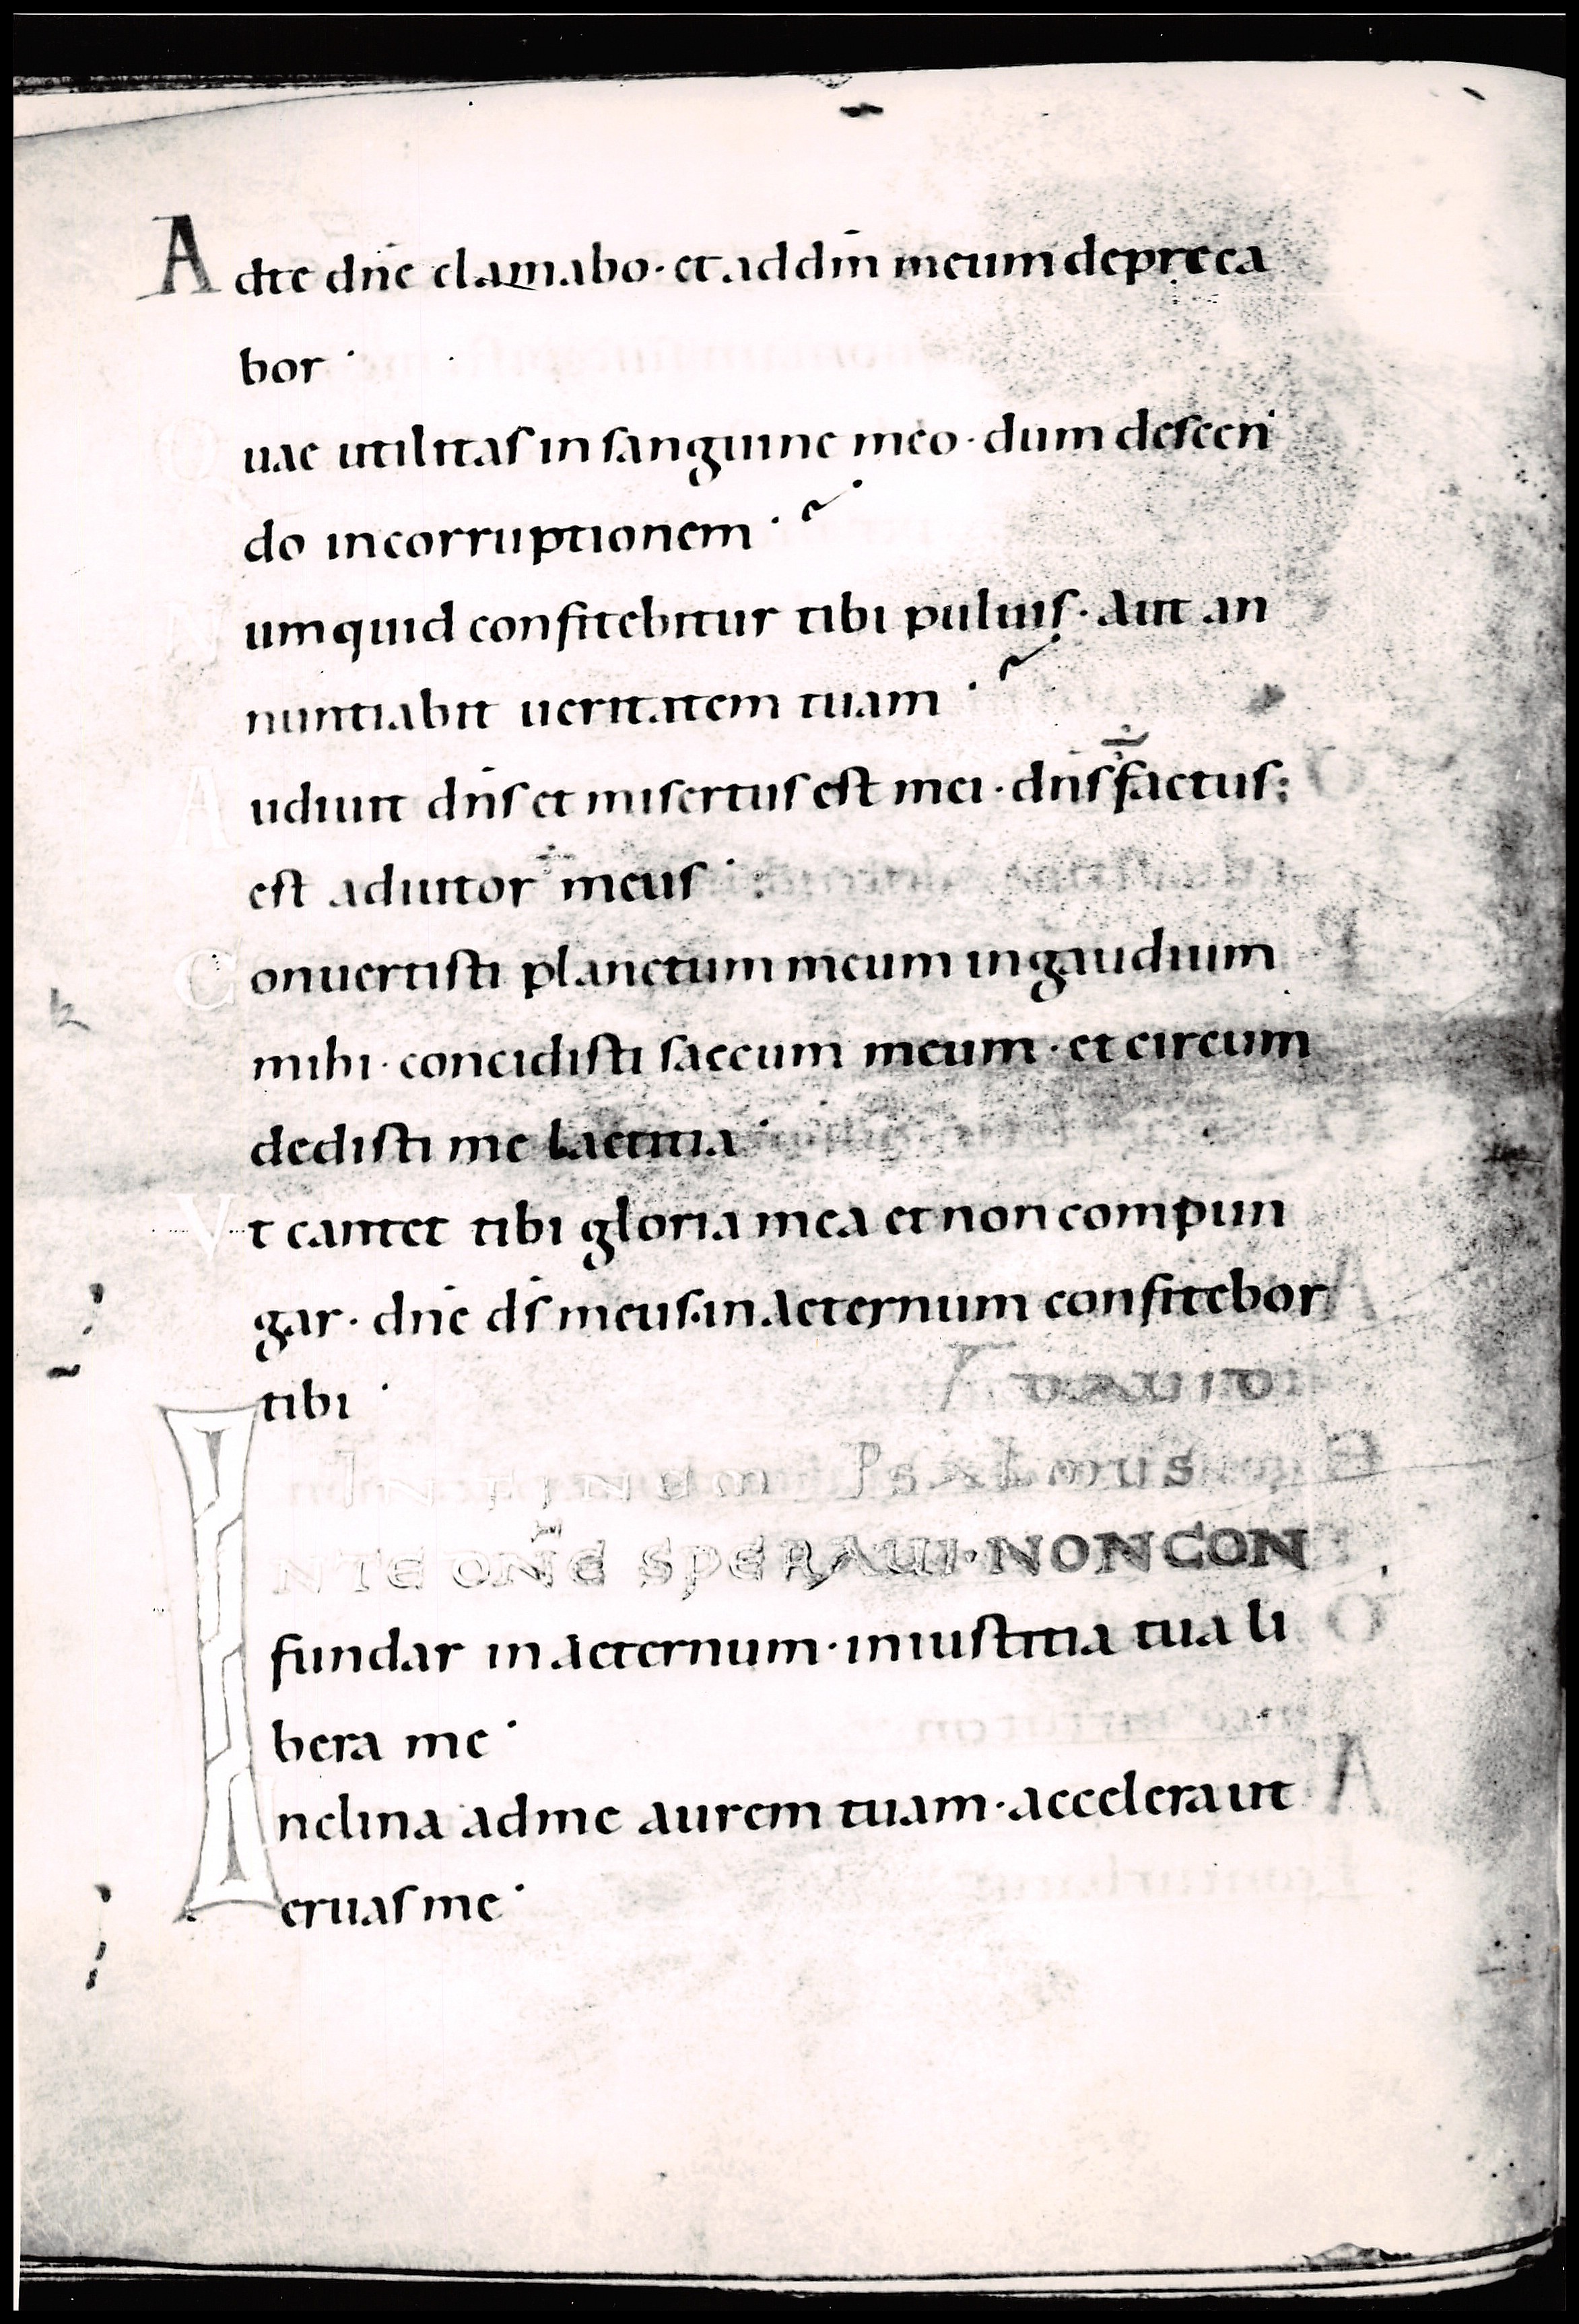 Adte dn̄e clamabo· et ad dm̄ meum depreca
bor·
Quae utilitas in sanguine meo· dum descen
do in corruptionem·
Numquid confitebitur tibi puluis· Aut an
nuntiabit ueritatem tuam·
Audiuit dn̄s et misertus est mei· dn̄s factus
est adiutor meus·
Conuertisti planctum meum in gaudium
mihi· concidisti saccum meum· et circum
dedisti me laetitia·
Vt cantet tibi gloria mea et non compun
gar· dn̄e ds̄ meus· in aeternum confitebor
tibi·
DAVID
IN FINEM PSALMUS
INTE DN̄E SPERAUI· NON CON
fundar in aeternum· in iustitia tua li
bera me·
Inclina ad me aurem tuam· accelera ut
eruas me·